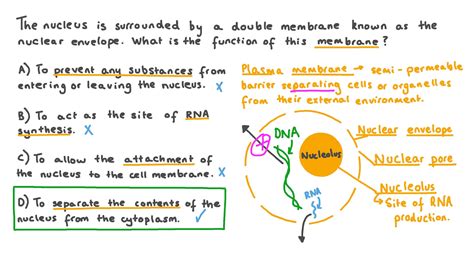 The nucleus is surrounded by a double membrane known as the
nuclear envelope. What is the function of this membrane?
A) To prevent any substances from
entering or leaving the nucleus. x
B) To act as the site of RNA
synthesis. x
C) To allow the attachment of
the nucleus to the cell membrane. x
D) To separate the contents of the
nucleus from the cytoplasm. ✓
Plasma membrane → semi-permeable
barrier separating cells or organelles
from their external environment.
DNA
Nucleolus
RNA
Nuclear envelope
Nuclear pore
Nucleolus
↳ Site of RNA
production.